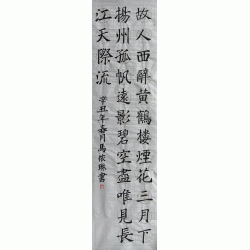 故人西辭黃鶴樓煙花三月下
揚州孤帆遠影碧空盡唯見長
江天際流
辛丑年嘉月馬依琳書